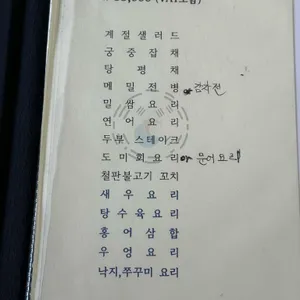 (VAT포함)
계절샐러드
궁중잡채
탕평채
메밀전병 감자전
밀쌈요리
연어요리
두부 스테이크
도미회요리 or 문어요리
철판불고기 꼬치
새우요리
탕수육요리
홍어삼합
우엉요리
낙지,쭈꾸미 요리